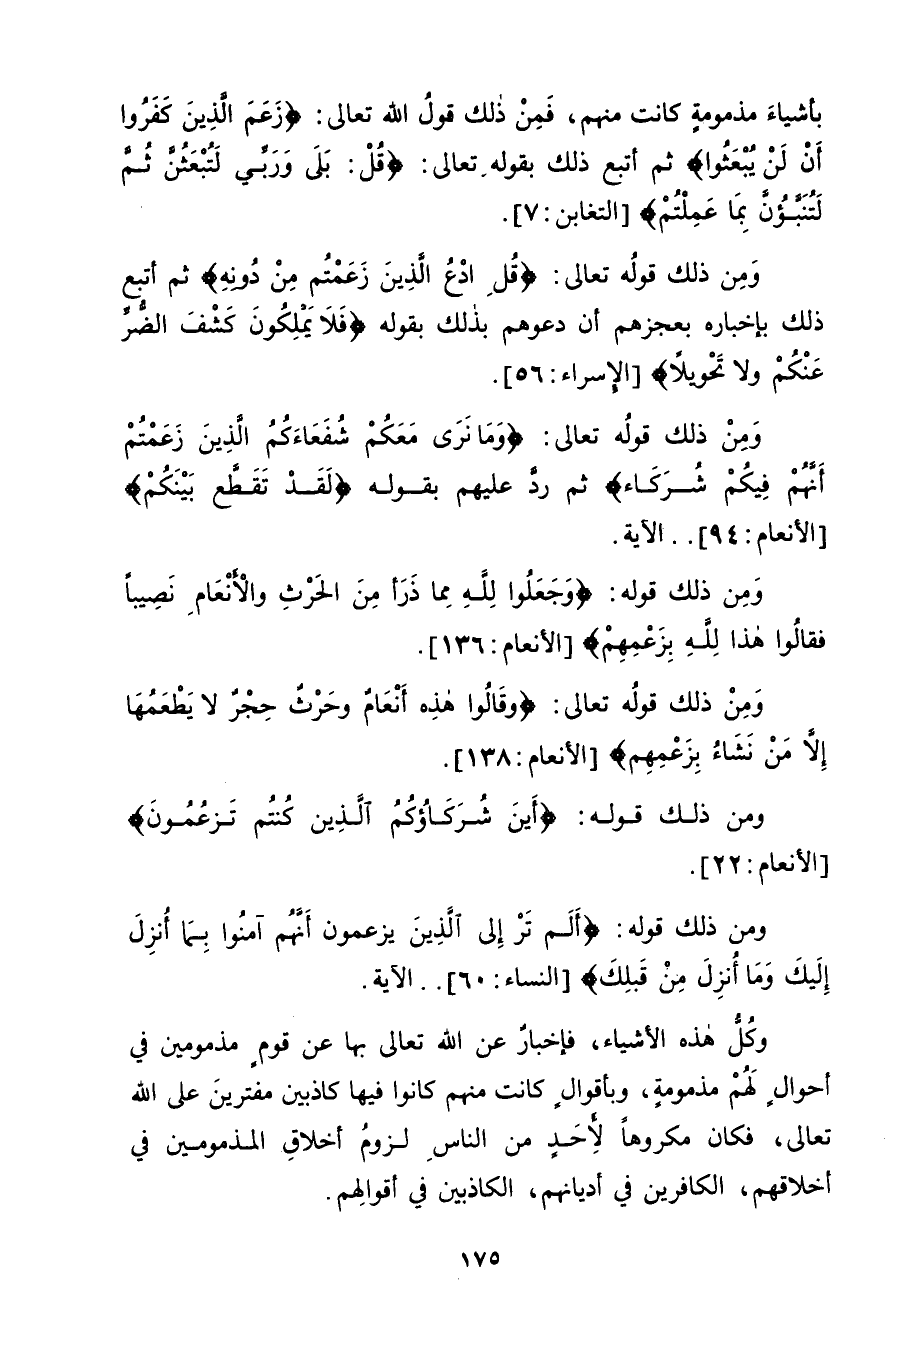 بأشياءَ مذمومةٍ كانت منهم، فَمِنْ ذٰلك قولُ الله تعالى: ﴿زَعَمَ الَّذِينَ كَفَرُوا
أَنْ لَنْ يُبْعَثُوا﴾ ثم أتبع ذلك بقوله تعالى: ﴿قُلْ: بَلَى وَرَبِّي لَتُبْعَثُنَّ ثُمَّ
لَتُنَبَّؤُنَّ بِمَا عَمِلْتُمْ﴾ [التغابن: ٧].
وَمِن ذلك قولُه تعالى: ﴿قُلِ ادْعُ الَّذِينَ زَعَمْتُم مِنْ دُونِهِ﴾ ثم أتبع
ذلك بإخباره بعجزهم أن دعوهم بذٰلك بقوله ﴿فَلَا يَمْلِكُونَ كَشْفَ الضُّرِّ
عَنْكُمْ ولا تَحْوِيلًا﴾ [الإسراء: ٥٦].
وَمِنْ ذلك قولُه تعالى: ﴿وَمَا نَرَى مَعَكُمْ شُفَعَاءَكُمُ الَّذِينَ زَعَمْتُمْ
أَنَّهُمْ فِيكُمْ شُرَكَاء﴾ ثم ردَّ عليهم بقوله ﴿لَقَدْ تَقَطَّع بَيْنَكُمْ﴾
[الأنعام: ٩٤]. . الآية.
وَمِن ذلك قوله: ﴿وَجَعَلُوا لِلَّهِ مِما ذَرَأ مِنَ الحَرْثِ والْأَنْعَامِ نَصِيباً
فقالُوا هٰذا لِلَّهِ بِزَعْمِهِمْ﴾ [الأنعام: ١٣٦].
وَمِنْ ذلك قولُه تعالى: ﴿وقَالُوا هٰذِه أَنْعَامٌ وحَرْثٌ حِجْرٌ لا يَطْعَمُهَا
إِلَّا مَنْ نَشَاءُ بِزَعْمِهِم﴾ [الأنعام: ١٣٨].
ومن ذلك قوله: ﴿أَينَ شُرَكَاؤُكُمُ ٱلَّذِين كُنتُم تَزعُمُونَ﴾
[الأنعام: ٢٢].
ومن ذلك قوله: ﴿أَلَم تَرْ إِلى ٱلَّذِينَ يزعمون أَنَّهُم آمنُوا بِمَا أُنزِلَ
إِلَيكَ وَمَا أُنزِلَ مِنْ قَبلِكَ﴾ [النساء: ٦٠]. . الآية.
وكُلُّ هٰذه الأشياء، فإخبارٌ عن الله تعالى بها عن قومٍ مذمومين في
أحوالٍ لَهُمْ مذمومةٍ، وبأقوالٍ كانت منهم كانوا فيها كاذبين مفترينَ على الله
تعالى، فكان مكروهاً لِأَحَدٍ من الناسِ لزومُ أخلاقِ المذمومين في
أخلاقهم، الكافرين في أديانهم، الكاذبين في أقوالِهم.
١٧٥